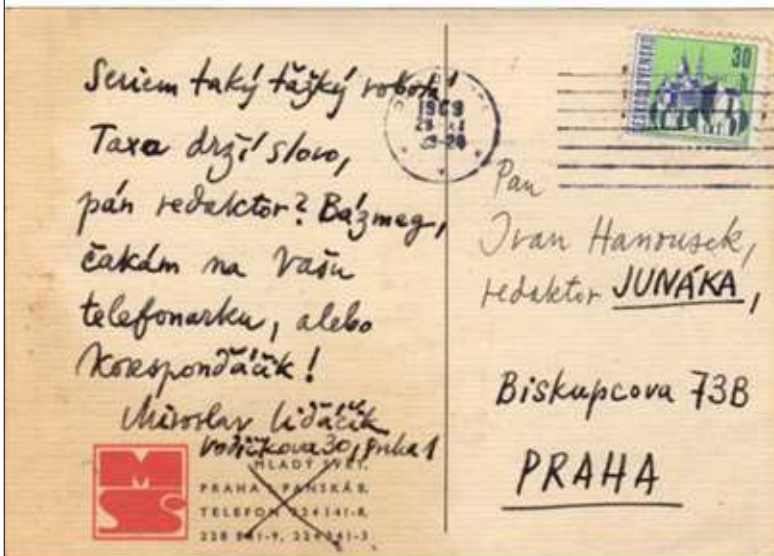 Seriem taký ťážký robota!
Taxa drží slovo,
pán redaktor? Bázmeg,
čakám na Vašu
telefonarku, alebo
Koresponďáčik!
Miroslav Liďáčik
Vodičkova 30, Praha 1
MLADÝ SVĚT,
PRAHA 1 PANSKÁ 8,
TELEFON 224141-8,
228 841-9, 224341-3
MS
1969
ČESKOSLOVENSKO
30
Pan
Ivan Hanousek,
redaktor JUNÁKA,
Biskupcova 73B
PRAHA